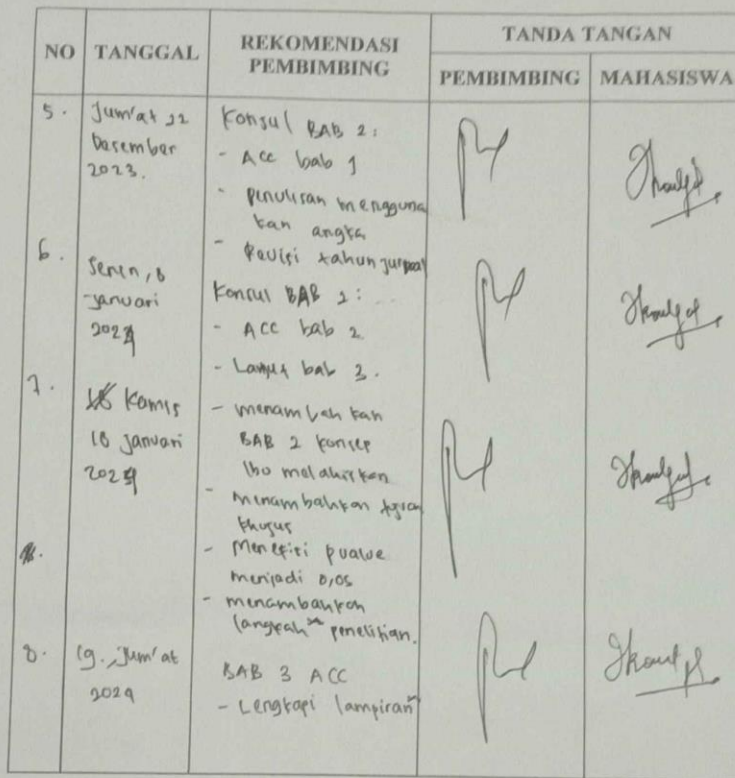 NO TANGGAL REKOMENDASI PEMBIMBING TANDA TANGAN
PEMBIMBING MAHASISWA
5. Jum'at 22 Desember 2023.
Konsul BAB 2:
- Acc bab 1
- penulisan mengguna
kan angka
- Revisi tahun jurnal
6. Senin, 8 Januari 2024
Konsul BAB 2:
- ACC bab 2
- Lanjut bab 3.
7. Kamis 18 Januari 2024
- menambahkan
BAB 2 konsep
Ibu melahirkan
- Menambahkan
khusus
- Menefisi pvalue
menjadi 0,05
- menambahkan
langkah" penelitian.
8. 19. Jum'at 2024
BAB 3 ACC
- Lengkapi lampiran"